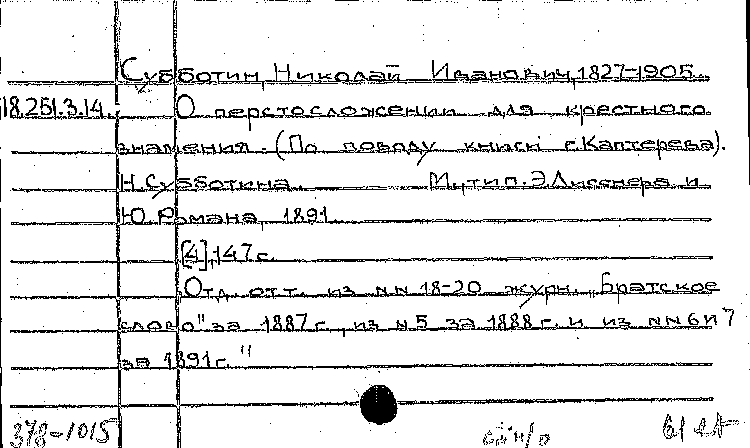 Субботин, Николай Иванович, 1827-1905.
18.251.3.14. О перстосложении для крестного
знамения. (По поводу книги г. Каптерева).
Н. Субботина. М., тип. Э. Лисснера и
Ю. Романа, 1891.
[4], 147 с.
Отд. отт. из NN 18-20 журн. "Братское
слово" за 1887 г., из N 5 за 1888 г. и из NN 6 и 7
за 1891 г."
378-1015